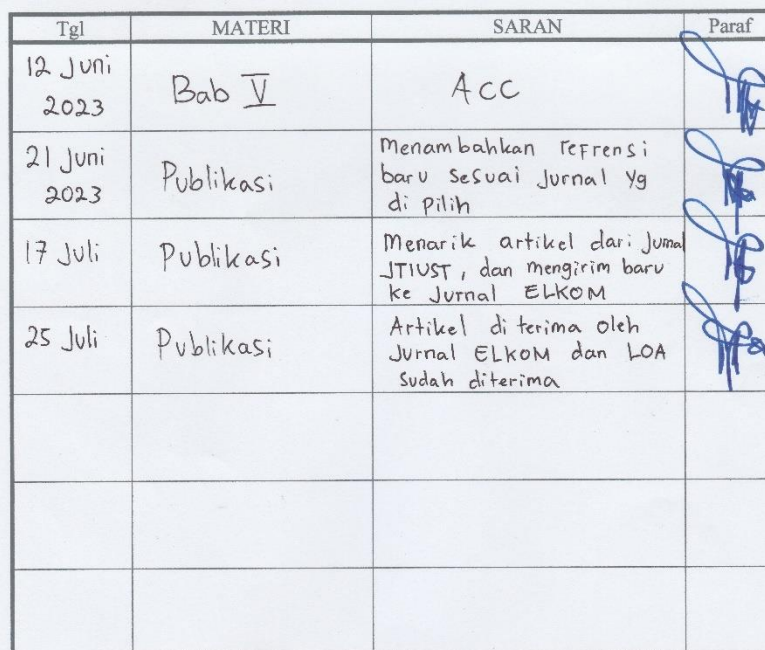 Tgl MATERI SARAN Paraf
12 Juni
2023
Bab V
ACC
21 Juni
2023
Publikasi
Menambahkan refrensi
baru sesuai Jurnal Yg
di Pilih
17 Juli
Publikasi
Menarik artikel dari Jurnal
JTIUST, dan mengirim baru
ke Jurnal ELKOM
25 Juli
Publikasi
Artikel di terima oleh
Jurnal ELKOM dan LOA
Sudah diterima